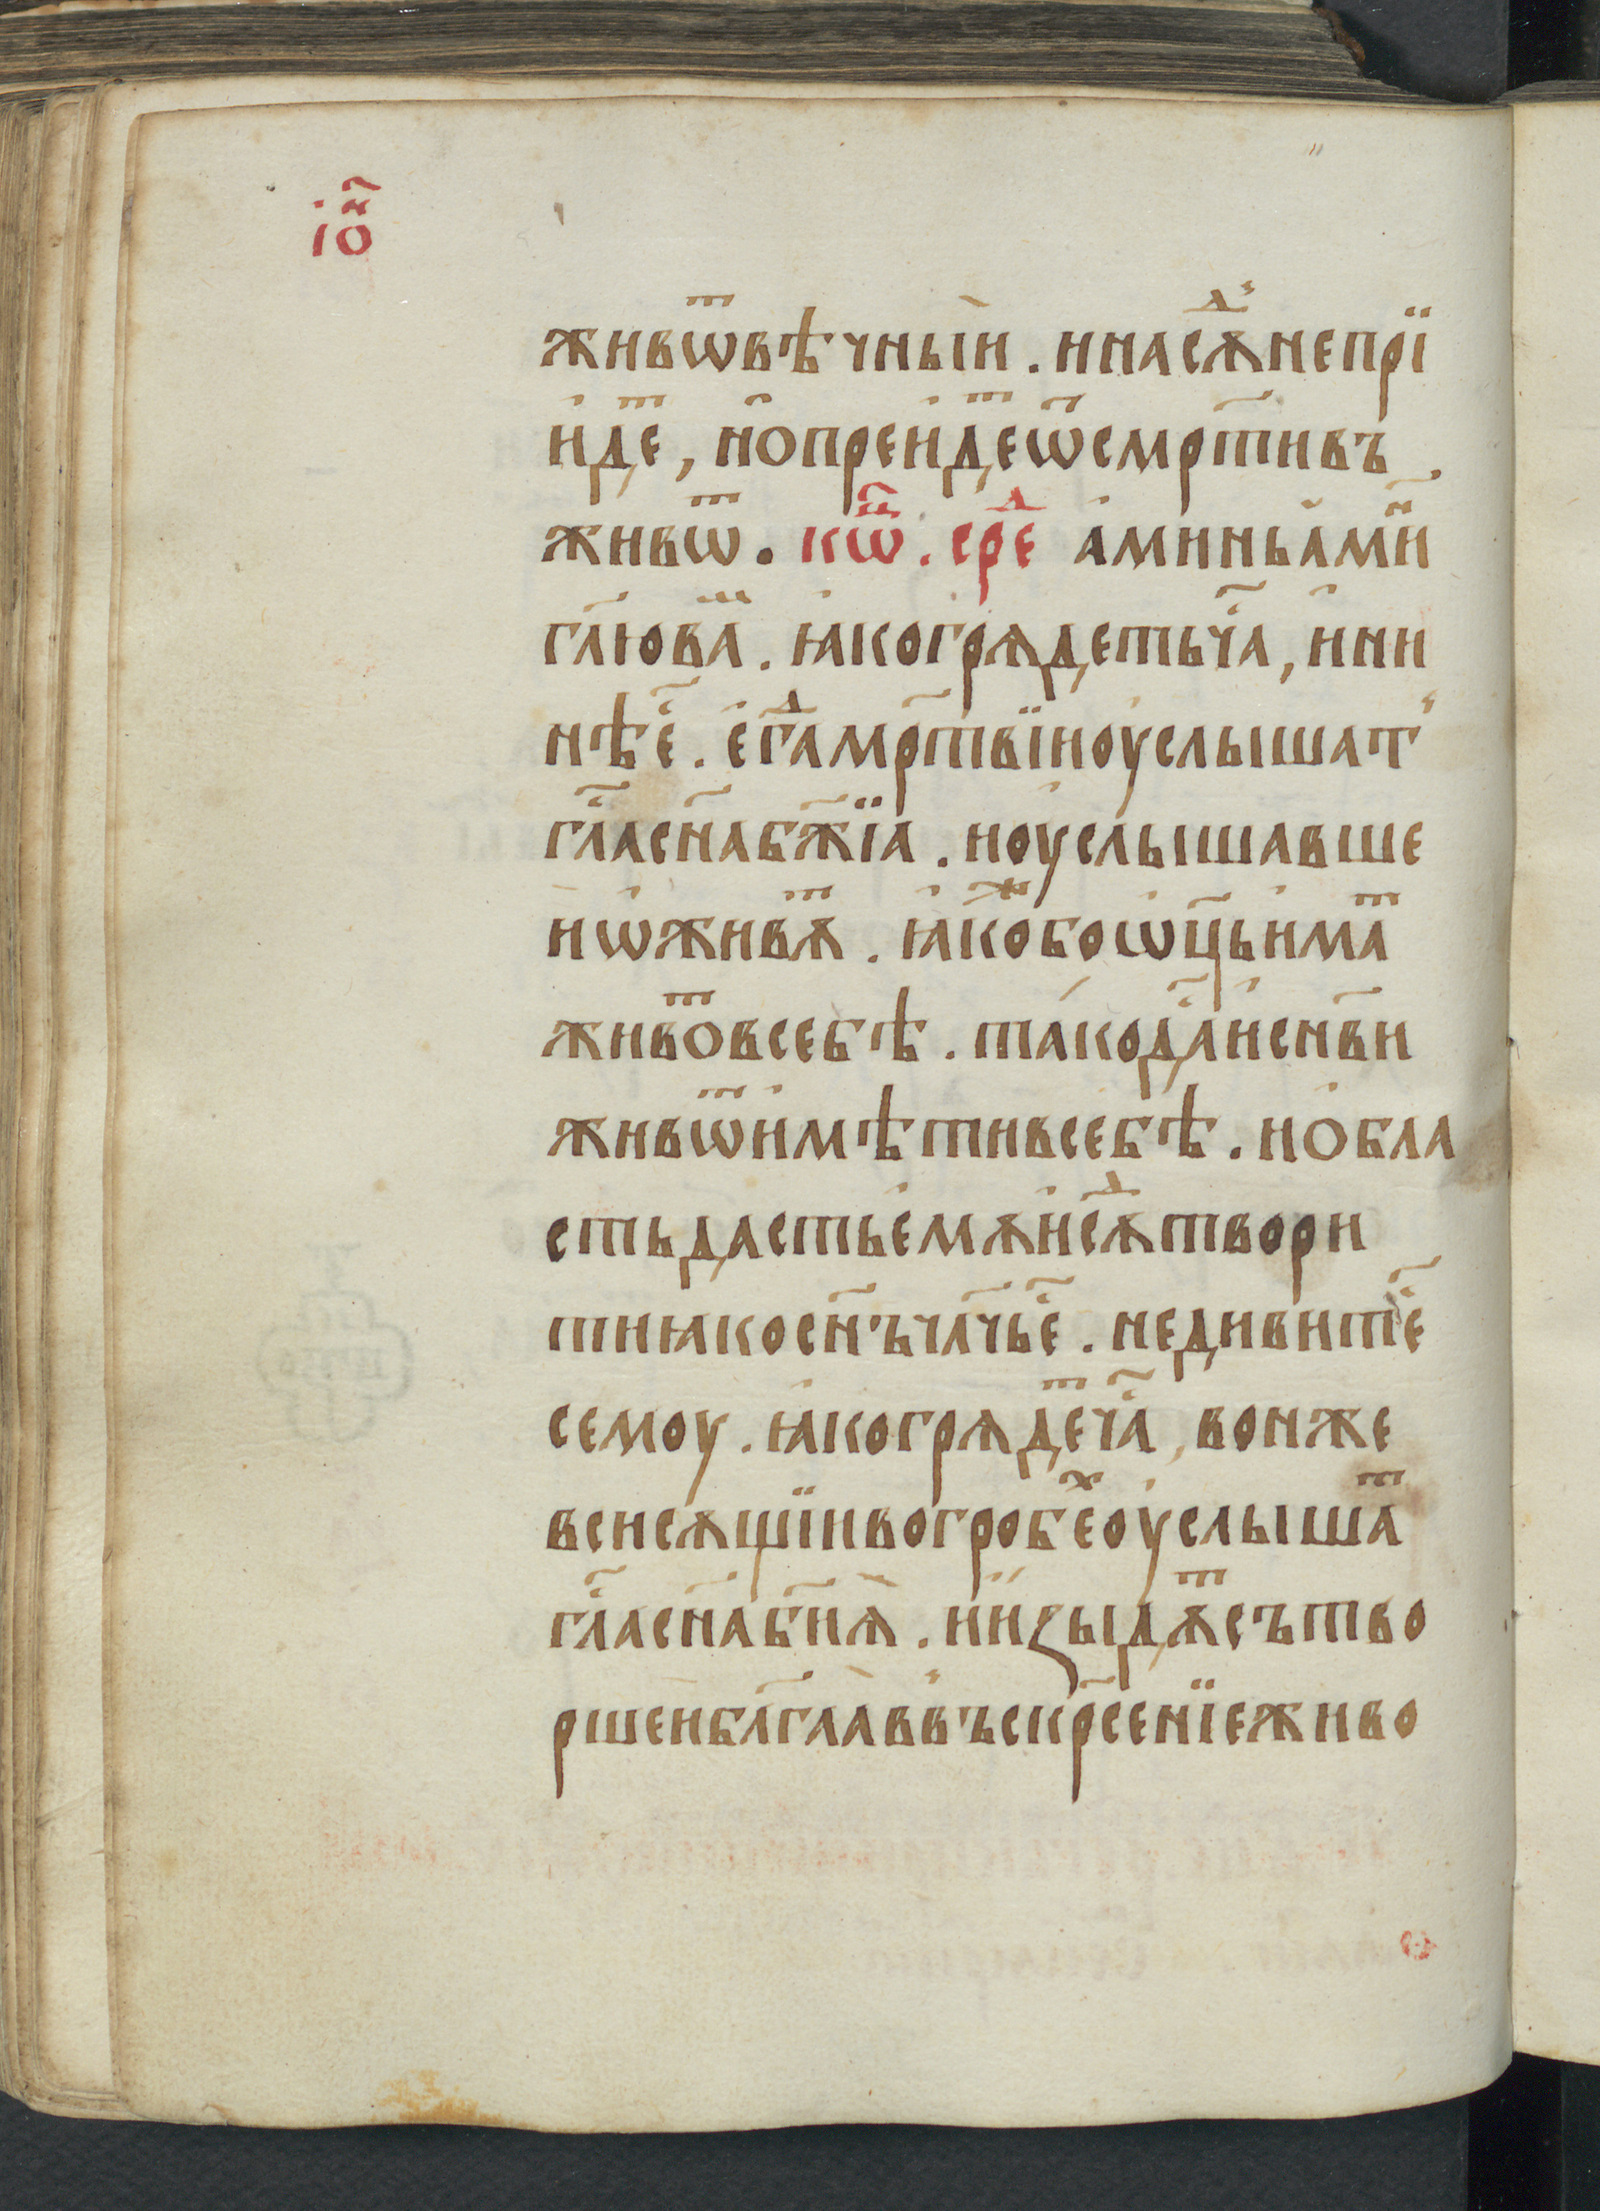 іѡ҃а
живѡⷮвѣчныѝ . инасѫⷣнепрїи
и҆деⷮ , но̑преи҆деⷮѿсмр҃тивъ
живѡⷮ . кѡⷰ҇ . среⷣ а҆миньами҃н
гл҃юваⷨ . ꙗ҆когрѧдетьча҃с , и҆нн
нѣе҃ . е҆гдⷣамр҃твїиоуслышат
гл҃асн҃аб҃жїа . иоуслышавше
и҆ѡ҆живѫⷮ . ꙗ҆коⷤбоѡ҆ц҃ьи҆маⷮ
живоⷮвсебѣ . та́кода҃и҆сн҃ви
живѡⷮи҆мѣтивсебѣ . и҆обла
стьдастье҆мѫи҆сѫⷣтвори
тиꙗкосн҃ъчл҃чье҃ . недивите҃
семоу . ꙗ҆когрѧдеⷮча҃ , вонже
всисѫщїивогробеⷯоу҆слышаⷮ
гл҃асн҃аб҃иѧ . и҆и҆зыдѫⷮсътво
ршеи҆бл҃гаꙗвъскр҃сенїеживо